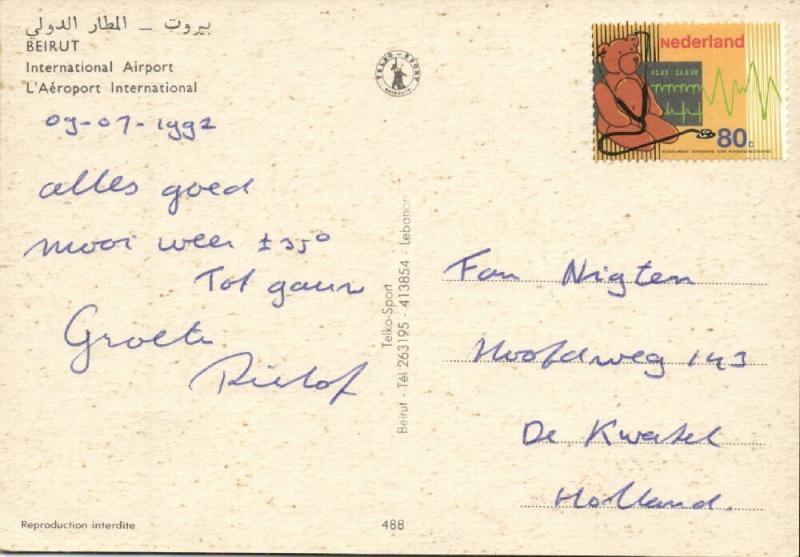 بيروت – المطار الدولي
BEIRUT
International Airport
L'Aéroport International
09-07-1992
alles goed
mooi weer ± 35°
Tot gauw
Groeten
Rielof
TELKO-SPORT
BEYROUTH
Nederland
80c
Telko-Sport
Beirut - Tél 263195 - 413854 - Lebanon
Fam Nigten
Hoofdweg 143
De Kwakel
Holland.
Reproduction interdite
488